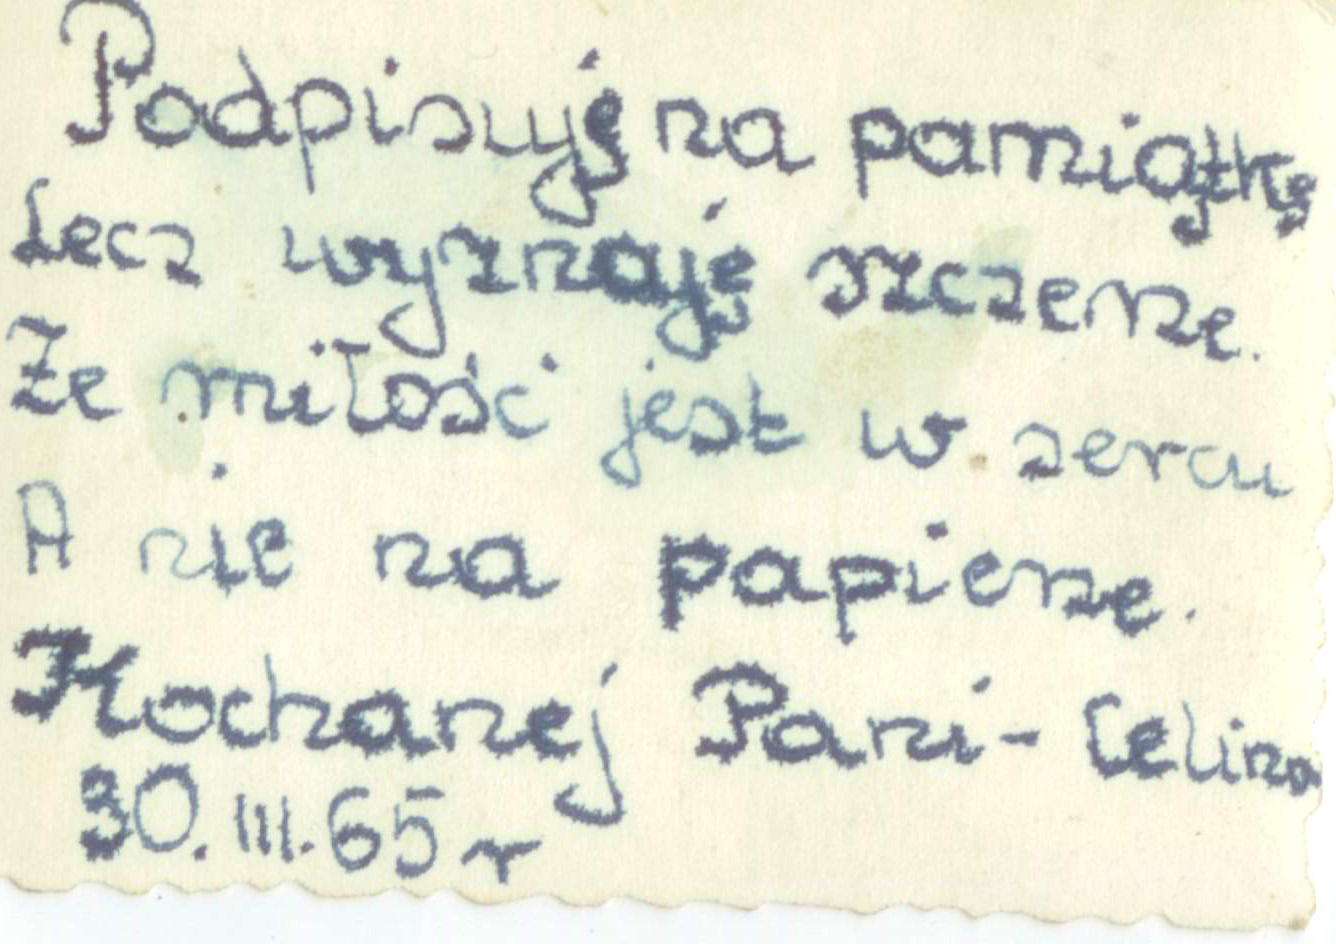 Podpisuję na pamiątkę
Lecz wyznaję szczerze.
Że miłość jest w sercu
A nie na papierze.
Kochanej Pani - Celina
30.III.65 r